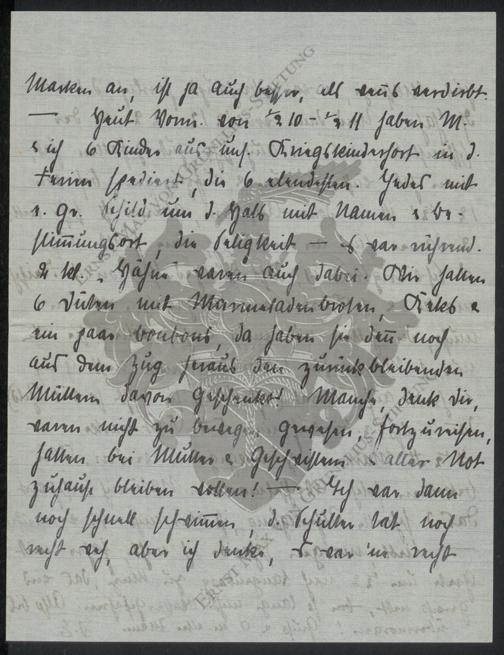 Marken an, ist ja auch besser, als wenns verdirbt.
— Heut Vorm. von ½ 10 – ½ 11 haben M.
& ich 6 Kinder aus uns. Kriegskinderhort in d.
Ferien spediert, die 6 elendesten. Jedes mit
e. gr. Schild um d. Hals mit Namen & Be-
stimmungsort, die Seligkeit — es war rührend.
2 kl. Hähne waren auch dabei. Wir hatten
6 Düten mit Marmeladenbroten, Keks &
ein paar bonbons, da haben sie den noch
aus dem Zug heraus den zurückbleibenden
Müttern davon geschenkt. Manche, denk dir,
waren nicht zu bewegen gewesen, fortzureisen,
hatten bei Mutter & Geschwistern & aller Not
zuhause bleiben wollen! — Ich war dann
noch schnell schwimmen, d. Schulter tat noch
recht weh, aber ich denke, es war 'ne recht
ERNST MAX VON GRUNELIUS-STIFTUNG
ERNST MAX VON GRUNELIUS-STIFTUNG